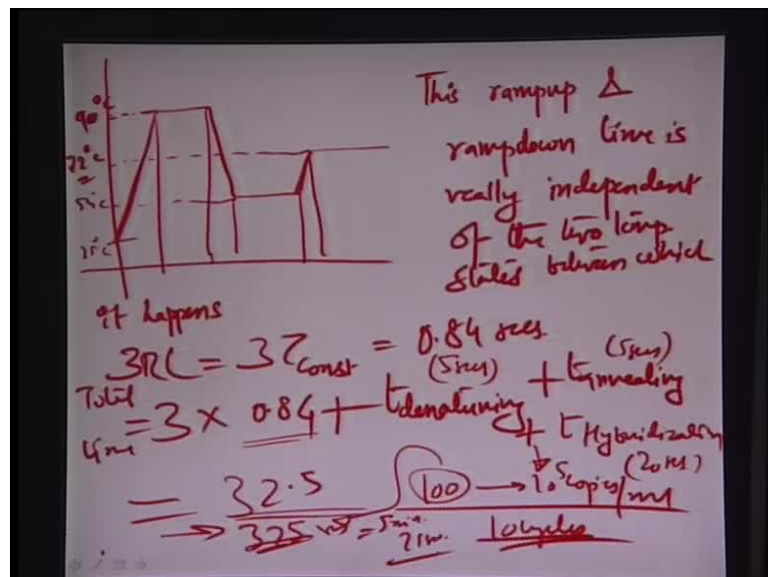 90°c
72°c
55°c
25°c
This rampup &
rampdown time is
really independent
of the two temp
states between which
it happens
3RC = 3τconst = 0.84 secs
(5secs) (5secs)
Total time = 3 x 0.84 + tdenaturing + tannealing
+ tHybridization
(20secs)
= 32.5 100 → 10 copies/ml
→ 325 = 5min. 10cycles